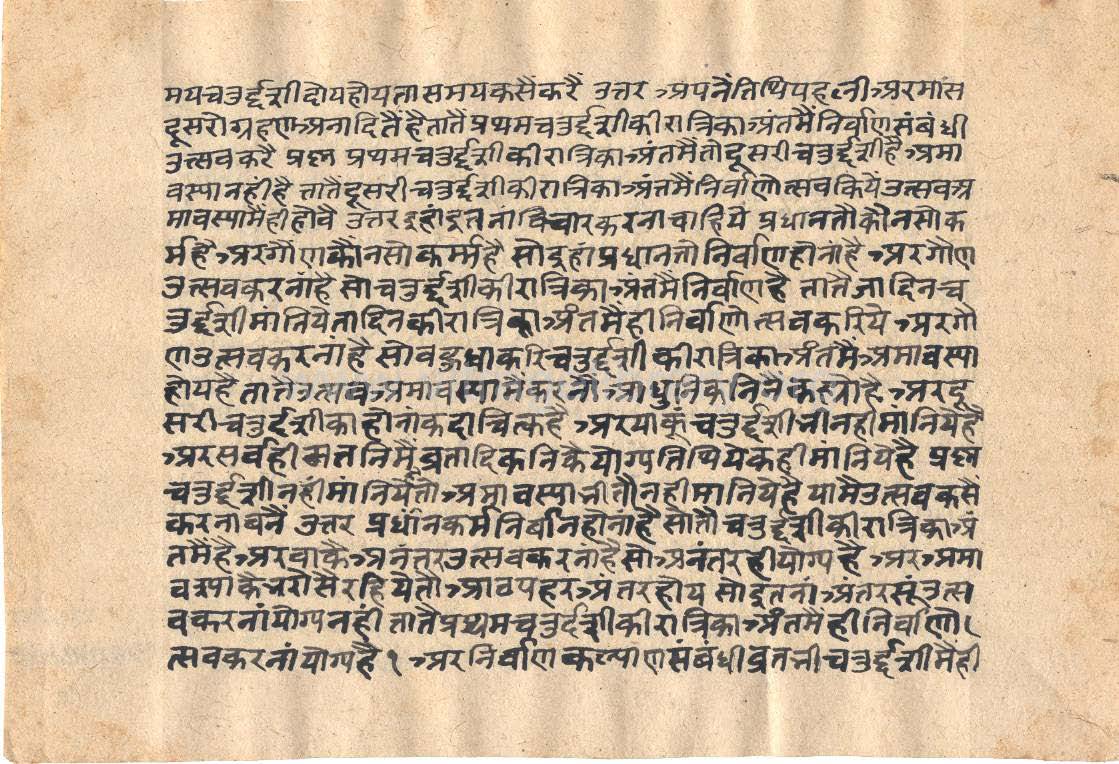 मयचतुर्द्दशीदोयहोयतासमयकसैंकरैं उत्तर अपनैतिथिपहली अरमास
दूसरोग्रहण अनादितैंहैतातैंप्रथमचतुर्द्दशीकीरात्रिकाअंतमैंनिर्वाणसंबंधी
उत्सवकरै प्रश्न प्रथमचतुर्द्दशीकीरात्रिकाअंतमैंतौदूसरीचतुर्द्दशीहै अमा
वस्यानहींहै तातैंदूसरीचतुर्द्दशीकीरात्रिकाअंतमैंनिर्वाणोत्सवकियेंउत्सवअ
मावस्यामैंहीहोवै उत्तर इहांइतनांविचारकरनाचाहिये प्रधानतौकौनसोक
र्महै अरगौणकौनसोकर्म्महै सोइहांप्रधानतौनिर्वाणहोनांहै अरगौण
उत्सवकरनांहै सोचतुर्द्दशीकीरात्रिकाअंतमैंनिर्वाणहै तातैंजादिनच
तुर्द्दशीमानियेतादिनकीरात्रिकाअंतमैंहीनिर्वाणोत्सवकरिये अरगौ
णउत्सवकरनांहै सोवहुधाकरिचतुर्द्दशीकीरात्रिकाअंतमैंअमावस्या
होयहैतातैंउत्सवअमावस्यामैंकरनौंआधुनिकनिनैंकह्याहै अरदू
सरीचतुर्द्दशीकाहोनांकदाचित्कहै अरयाकूंचतुर्द्दशीभीनहीमानियेहै
अरसर्वहीमतनिमैंव्रतादिकनिकेयोग्यतिथियेकहीमांनियेहै प्रश्न
चतुर्द्दशीनहींमांनियैतौअमावस्याभीतौनहीमानियेहै यामैउत्सवकसै
करनावनैं उत्तर प्रधांनकर्मनिर्वानहोनांहैसोतौचतुर्द्दशीकीरात्रिकाअं
तमैंहै अरवाकैअनंतरउत्सवकरनांहैसोअनंतरहीयोग्यहै अरअमा
वस्याकेभरोसेरहियेतौआवपहरअंतरहोय सोइतनांअंतरसूंउत्स
वकरनांयोग्यनहीं तातैंप्रथमचतुर्दशीकीरात्रिकाअंतमैंहीनिर्वाणो
त्सवकरनांयोग्यहै१ अरनिर्वाणकल्याणसंबंधीव्रतभीचतुर्द्दशीमैंही